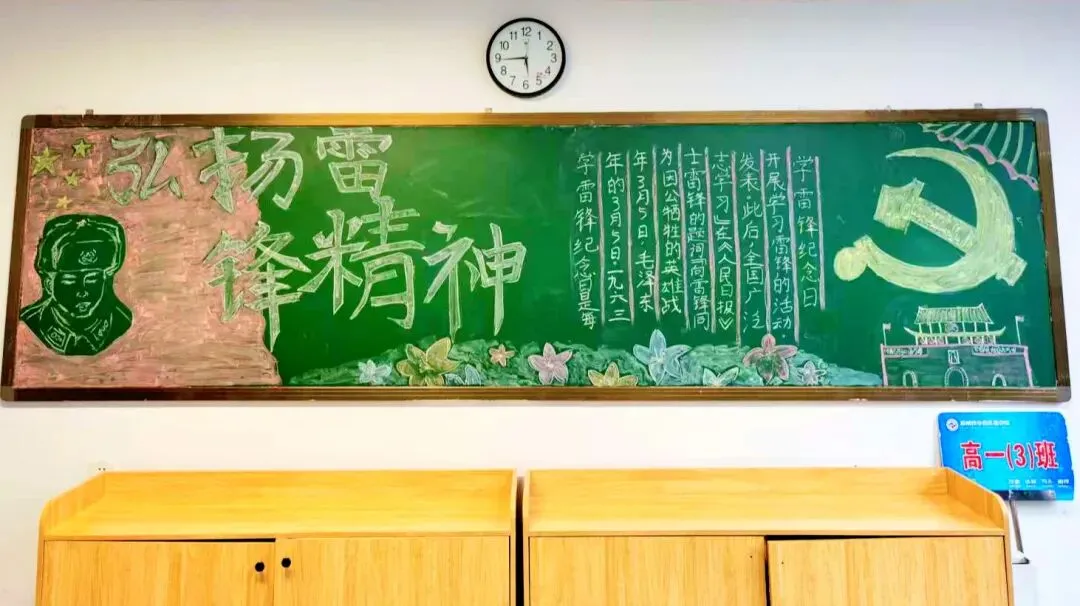 12
11 1
10 2
9 3
8 4
7 5
6
弘扬雷
锋精神
学雷锋纪念日是每
年的3月5日·一九六三
年3月5日,毛泽东
为因公牺牲的英雄战
士雷锋的题词「向雷锋同
志学习」在《人民日报》
发表·此后,全国广泛
开展学习雷锋的活动
学雷锋纪念日
高一(3)班